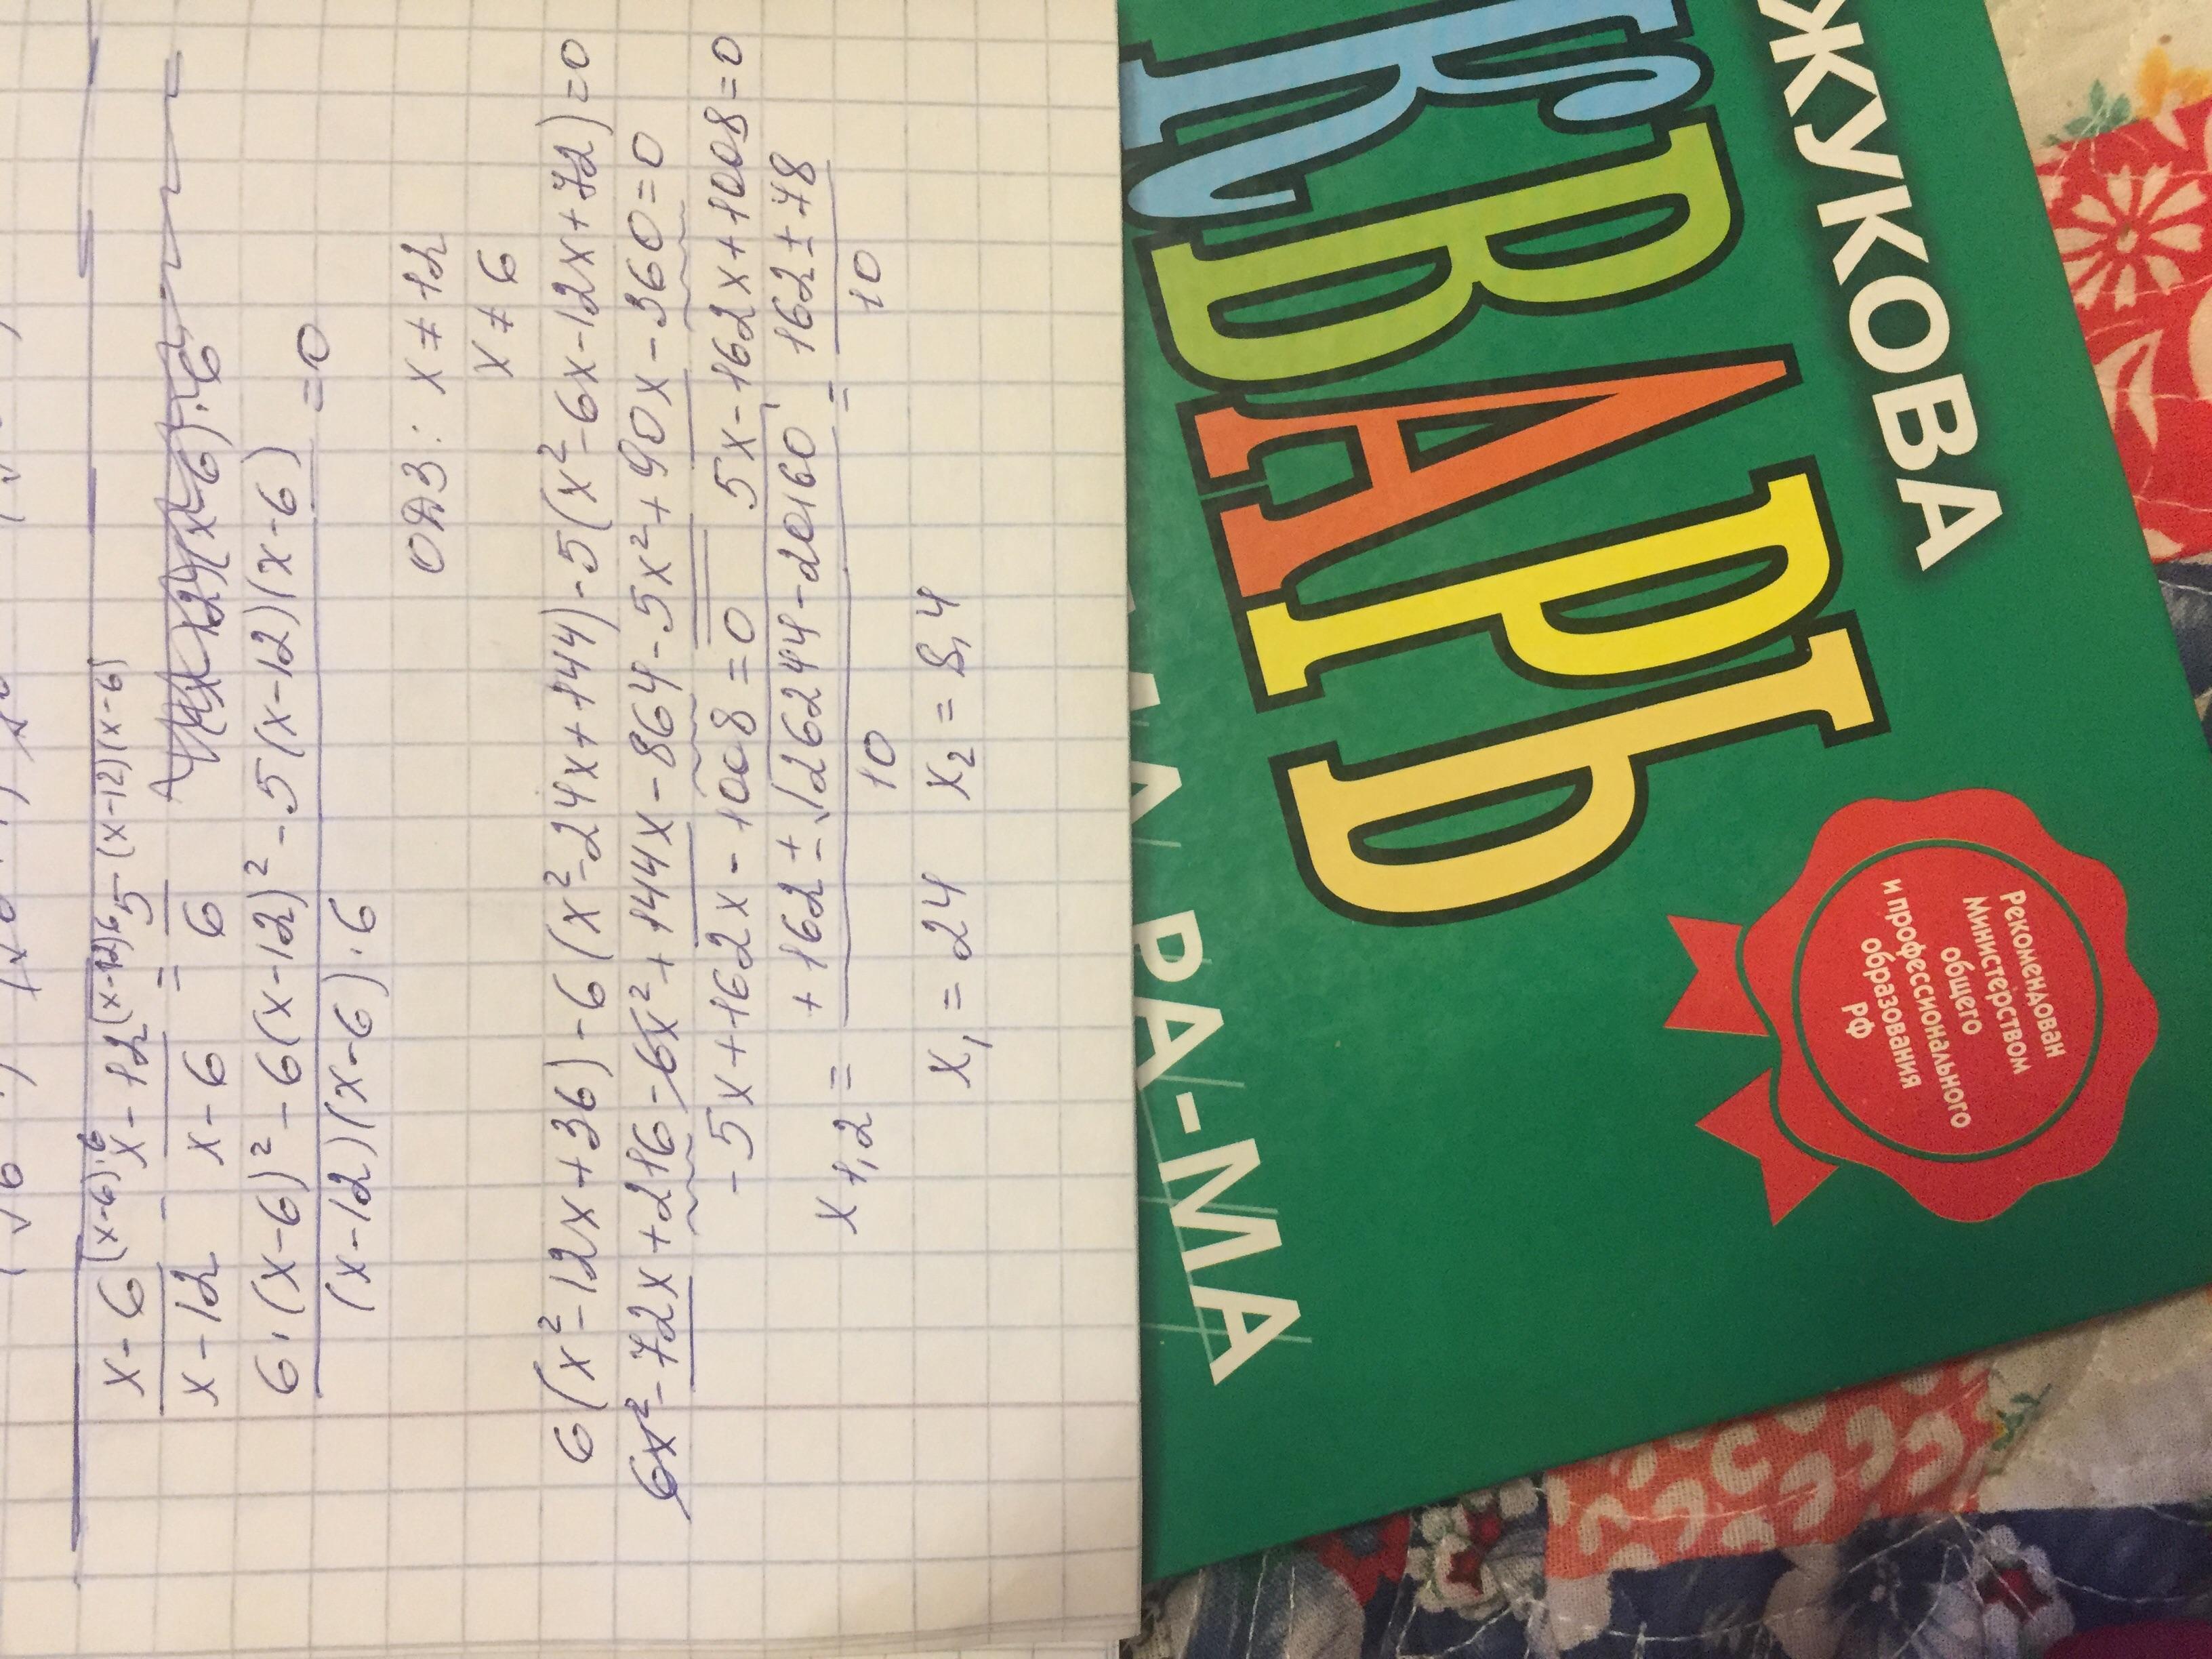 x-6^(x-6)·6/x-12 - x-12^(x-12)6/x-6 = 5^-(x-12)(x-6)/6
6·(x-6)²-6(x-12)²-5(x-12)(x-6)/(x-12)(x-6)·6 =0
ОДЗ: x≠12
x≠6
6(x²-12x+36)-6(x²-24x+144)-5(x²-6x-12x+72)=0
6x²-72x+216-6x²+144x-864-5x²+90x-360=0
-5x+162x-1008=0 5x-162x+1008=0
x1,2= +162±√26244-20160/10 = 162±78/10
x₁=24 x₂=8,4
ЖУКОВА
БУКВАРЬ
РА-МА
Рекомендован
Министерством
общего
и профессионального
образования
РФ